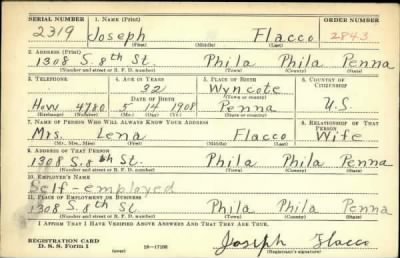 SERIAL NUMBER 1. NAME (Print) ORDER NUMBER
2319 Joseph Flacco 2843
(First) (Middle) (Last)
2. ADDRESS (Print)
1308 S. 8th St. Phila Phila Penna
(Number and street or R. F. D. number) (Town) (County) (State)
3. TELEPHONE 4. AGE IN YEARS 5. PLACE OF BIRTH 6. COUNTRY OF CITIZENSHIP
32 Wyncote
DATE OF BIRTH (Town or county)
How 4780 5 14 1908 Penna U.S.
(Exchange) (Number) (Mo.) (Day) (Yr.) (State or country)
7. NAME OF PERSON WHO WILL ALWAYS KNOW YOUR ADDRESS 8. RELATIONSHIP OF THAT PERSON
Mrs. Lena Flacco Wife
(Mr., Mrs., Miss) (First) (Middle) (Last)
9. ADDRESS OF THAT PERSON
1308 S. 8th St. Phila Phila Penna
(Number and street or R. F. D. number) (Town) (County) (State)
10. EMPLOYER'S NAME
Self-employed
11. PLACE OF EMPLOYMENT OR BUSINESS
1308 S. 8th St. Phila Phila Penna
(Number and street or R. F. D. number) (Town) (County) (State)
I AFFIRM THAT I HAVE VERIFIED ABOVE ANSWERS AND THAT THEY ARE TRUE.
REGISTRATION CARD
D. S. S. Form 1 (over) 16—17105 Joseph Flacco
(Registrant's signature)